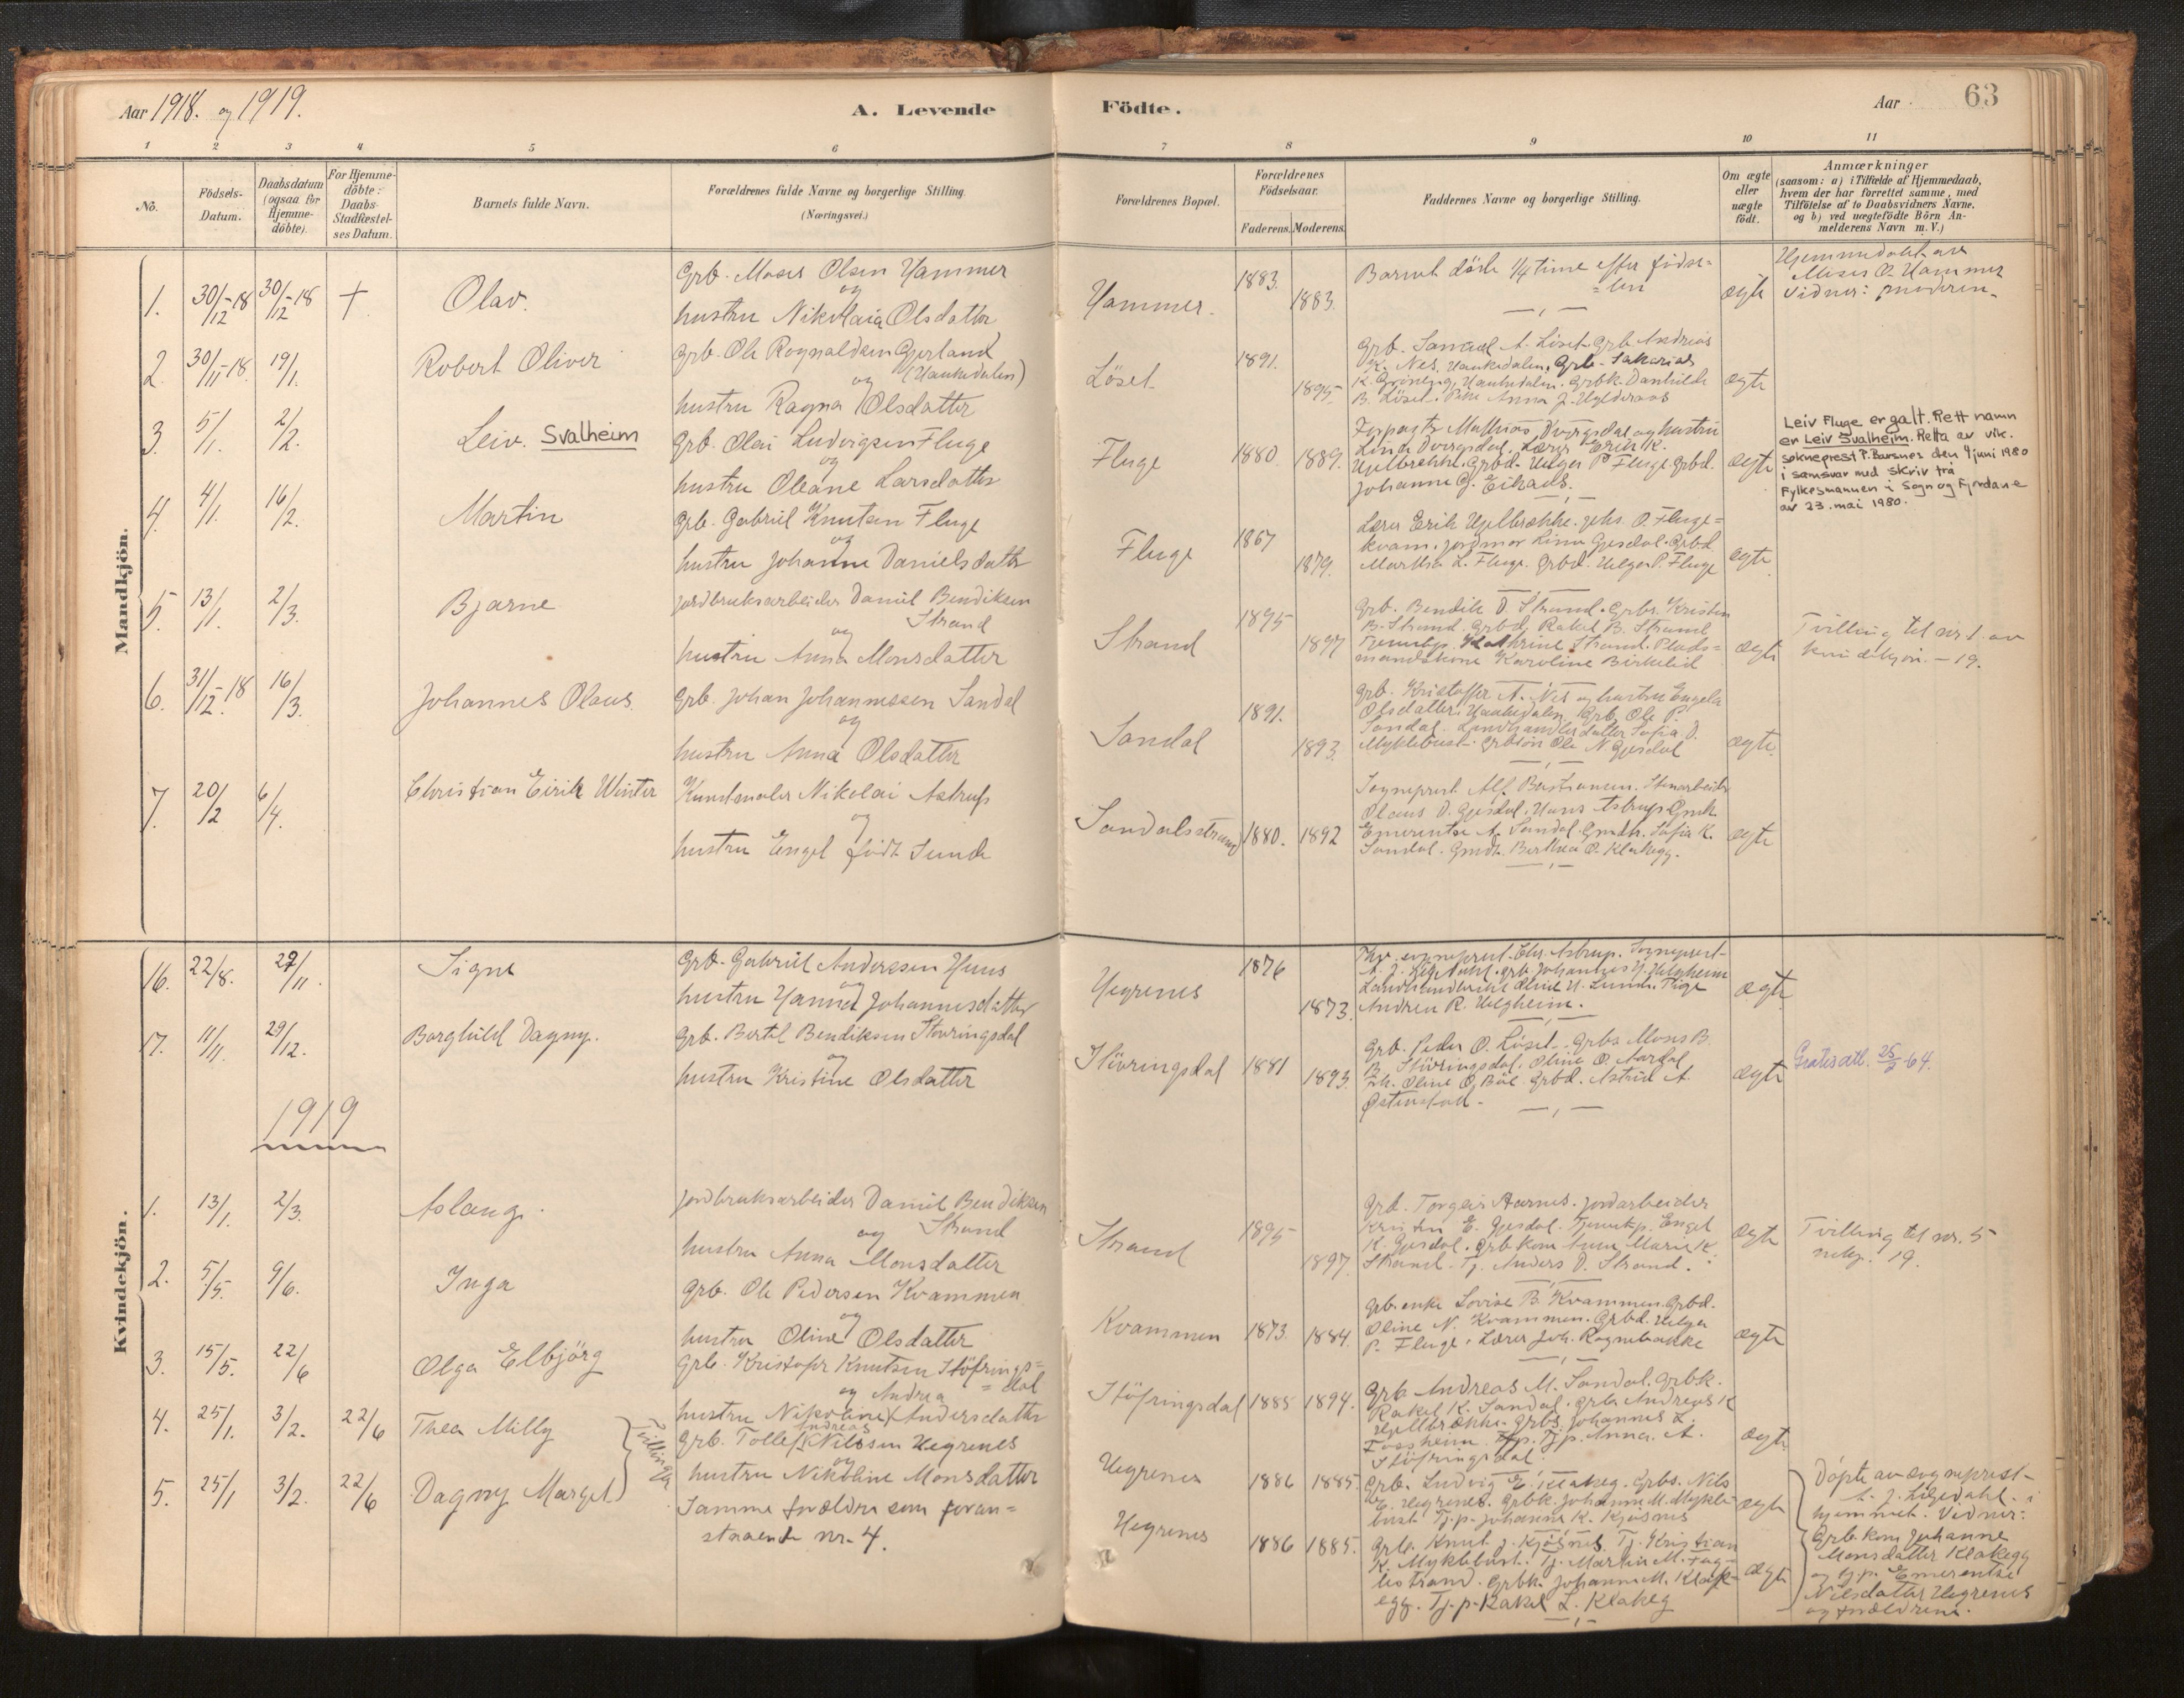 Aar 1918. og 1919.
A. Levende
Födte.
Aar
63
1 2 3 4 5 6 7 8 9 10 11
No.
Födsels-Datum.
Daabsdatum (ogsaa for Hjemme-döbte).
For Hjemme-döbte: Daabs-Stadfæstel-ses Datum.
Barnets fulde Navn.
Forældrenes fulde Navne og borgerlige Stilling.
(Næringsvei.)
Forældrenes Bopæl.
Forældrenes Födselsaar.
Faderens. Moderens.
Faddernes Navne og borgerlige Stilling.
Om ægte eller uægte födt.
Anmærkninger
(saasom: a) i Tilfælde af Hjemmedaab,
hvem der har forrettet samme, med
Tilföielse af to Daabsvidners Navne.
og b) ved uægtefödte Börn An-
melderens Navn m. V.)
Mandkjön.
1. 30/12-18 30/12-18 + Olav.
Grb. Moses Olsen Hammer
og
hustru Nikolaia Olsdatter
Hammer. 1883. 1883.
Barnet døde 1/4 time efter fødse-
len
ægte
Hjemmedøbt av
Moses O. Hammer
Vidner: moderen.
2. 30/11-18 19/1. Robert Oliver
Grb. Ole Rognaldsen Gjerland
(Haukedalen)
og
hustru Ragna Olsdatter
Löset 1891. 1895
Grb. Samuel A. Löset. Grb. Andreas
K. Nes, Haukedalen. Grb. Sakarias
K. Grøneng, Haukedalen. Grbk. Danhilde
B. Löset. Pike Anna J.
ægte
3. 5/1. 2/2. Leiv. Svalheim
Grb. Olai Ludvigsen Fluge
og
hustru Oleane Larsdatter
Fluge 1880. 1889.
Forpagter Mathias Dvergsdal og hustru
Lina Dvergsdal. Lærer Erik K.
Hjelbrekke. Grbd. Helga P. Fluge. Grbd.
Johanne G. Eikaas.
ægte
Leiv Fluge er galt. Rett namn
er Leiv Svalheim. Retta av vik.
sokneprest P. Barsnes den 9 juni 1980
i samsvar med skriv frå
Fylkesmannen i Sogn og Fjordane
av 23. mai 1980.
4. 4/1. 16/2. Martin
Grb. Gabriel Knutsen Fluge
og
hustru Johanne Danielsdatter
Fluge 1867 1879.
Lærer Erik Hjelbrekke. Johs. O. Fluge-
kvam. Jordmor Lina Gjesdal. Grbd.
Martha L. Fluge. Grbd. Helga P. Fluge
ægte
5. 13/1. 2/3. Bjarne
Jordbruksarbeider Daniel Bendiksen
Strand
og
hustru Anna Monsdatter
Strand 1895 1897
Grb. Bendik D. Strand. Grbs. Kristen
B. Strand. Grbd. Rakel B. Strand
Tjenestep. Kathrine Strand. Plads-
mandskone Karoline Birkelid
ægte
Tvilling til nr. 1 av
kvindekjøn. - 19.
6. 31/12-18 16/3. Johannes Olaus.
Grb. Johan Johannessen Sandal
og
hustru Anna Olsdatter
Sandal 1891. 1893.
Grb. Kristoffer A. Nes og hustru Engela
Olsdatter, Haukedalen. Grb. Ole P.
Sandal. Landhandlerdatter Sofia O.
Myklebust. Grbsøn Ole N. Gjesdal
ægte.
7. 20/2 6/4. Christian Eirik Winter
Kunstmaler Nikolai Astrup
og
hustru Engel født Sunde
Sandalsstrand 1880. 1892
Sogneprest Alf Bastiansen. Stenarbeider
Olaus D. Gjesdal. Hans Astrup. Gmk.
Emerentse A. Sandal. Gmdtr. Sofia K.
Sandal. Gmdt. Berthea O. Klakegg.
ægte
Kvindekjön.
16. 22/8. 27/11. Signe
Grb. Gabriel Anderssen Huus
og
hustru Hanna Johannesdatter
Hegrenes 1876 1873.
Fhv. sogneprest Chr. Astrup. Sogneprest
A. J. Liljedahl. Grb. Johannes J. Helgheim
Landhandlerske Oline H. Lunde. Pige
Andrea R. Helgheim.
ægte
17. 11/11. 29/12. Borghild Dagny.
Grb. Bertel Bendiksen Støvringsdal
og
hustru Kristine Olsdatter
Stövringsdal 1881 1893.
Grb. Peder O. Löset. Grbs. Mons B.
B. Stövringsdal. Oline O. Aardal
Oline O. Böe. Grbd. Astrid A.
Østenstad.
ægte
Gratis att. 64.
1919
1. 13/1. 2/3. Aslaug.
Jordbruksarbeider Daniel Bendiksen
Strand
og
hustru Anna Monsdatter
Strand 1895 1897.
Grb. Torgeir Aarnes. Jordarbeider
Kristen E. Gjesdal. Tjenestp. Engel
K. Gjesdal. Grbkone Anne Marie K.
Strand. Tj. Anders D. Strand.
ægte
Tvilling til nr. 5
mkj. 19.
2. 5/5. 9/6. Inga
Grb. Ole Pedersen Kvammen
og
hustru Oline Olsdatter
Kvammen 1873. 1884.
Grb.enke Lovise B. Kvammen. Grbd.
Oline N. Kvammen. Grbd. Helga
P. Fluge. Lærer Joh. Rognebakke
ægte
3. 15/5. 22/6 Olga Elbjörg
Grb. Kristofer Knutsen Stöfrings-
dal
og Andrea
hustru Nikoline Andersdatter
Stöfringsdal 1885 1894.
Grb. Andreas M. Sandal. Grbk.
Rakel K. Sandal. Grb. Andreas K
Hjellbrekke. Grbs. Johannes L.
Fossheim. Tj.p. Anna A.
Stöfringsdal.
ægte
4. 25/1. 3/2. 22/6 Thea Milly
Tvillinger
Andreas
Grb. Tollef Nilssen Hegrenes
og
hustru Nikoline Monsdatter
Hegrenes 1886 1885.
Grb. Ludvig E. Klakeg. Grbs. Nils
E. Hegrenes. Grbk. Johanne M. Mykle-
bust. Tj.p. Johanne K. Kjøsnes
ægte
5. 25/1 3/2. 22/6 Dagny Marget
Samme forældre som foran-
staaende nr. 4.
Hegrenes 1886 1885.
Grb. Knut J. Kjøsnes. Tj. Kristian
K. Myklebust. Tj. Martin M. Fug-
lestrand. Grbk. Johanne M. Klak-
egg. Tj.p. Rakel L. Klakeg
ægte
Døpte av sogneprest
A. J. Liljedahl i
hjemmet. Vidner:
Grb.kone Johanne
Monsdatter Klakegg
og tj.p. Emerentse
Nilsdatter Hegrenes
og forældrene.